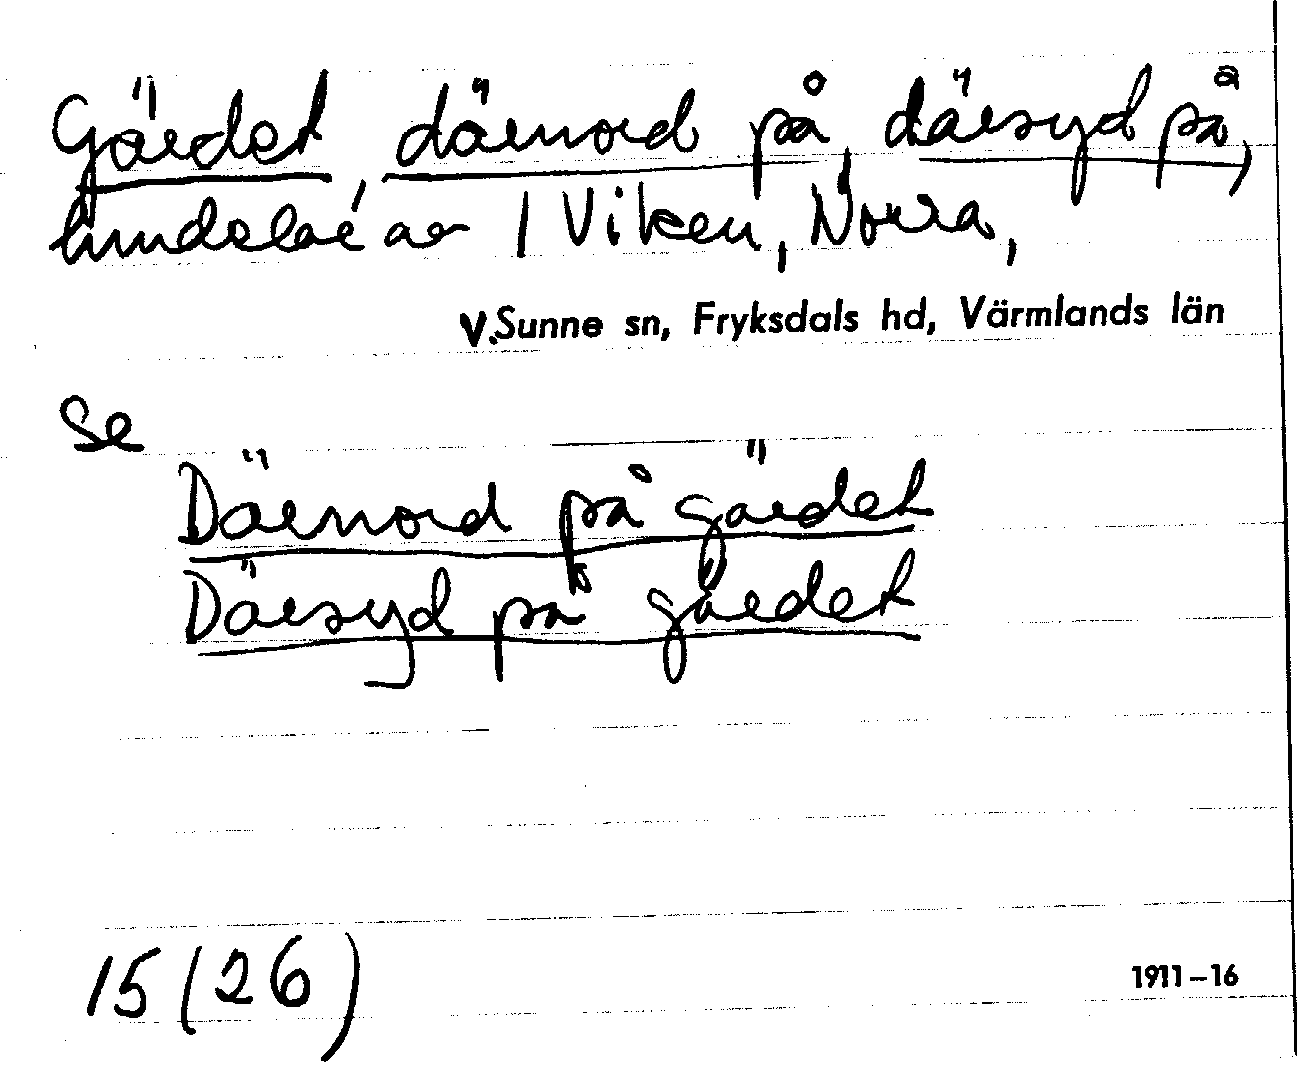 Gärdet, därnord på, därsyd på,
lindelar av 1 Viken, Norra,
V. Sunne sn, Fryksdals hd, Värmlands län
Se
Därnord på gärdet
Därsyd på gärdet
15 (26)
1911-16